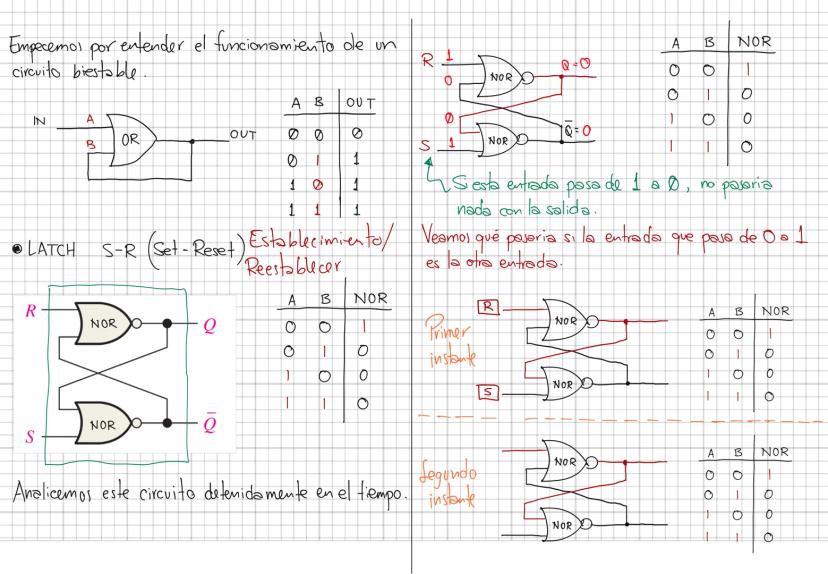 Empecemos por entender el funcionamiento de un
circuito biestable.
IN A B OR OUT
A B OUT
0 0 0
0 1 1
1 0 1
1 1 1
LATCH S-R (Set-Reset) Establecimiento/
Reestablecer
R NOR Q
S NOR Q̅
A B NOR
0 0 1
0 1 0
1 0 0
1 1 0
Analicemos este circuito detenidamente en el tiempo.
R 1 NOR Q=0
0
0 Q̅=0
S 1 NOR
A B NOR
0 0 1
0 1 0
1 0 0
1 1 0
Si esta entrada pasa de 1 a 0, no pasaria
nada con la salida.
Veamos qué pasaria si la entrada que pasa de 0 a 1
es la otra entrada.
Primer
instante
R NOR
S NOR
A B NOR
0 0 1
0 1 0
1 0 0
1 1 0
Segundo
instante
NOR
NOR
A B NOR
0 0 1
0 1 0
1 0 0
1 1 0